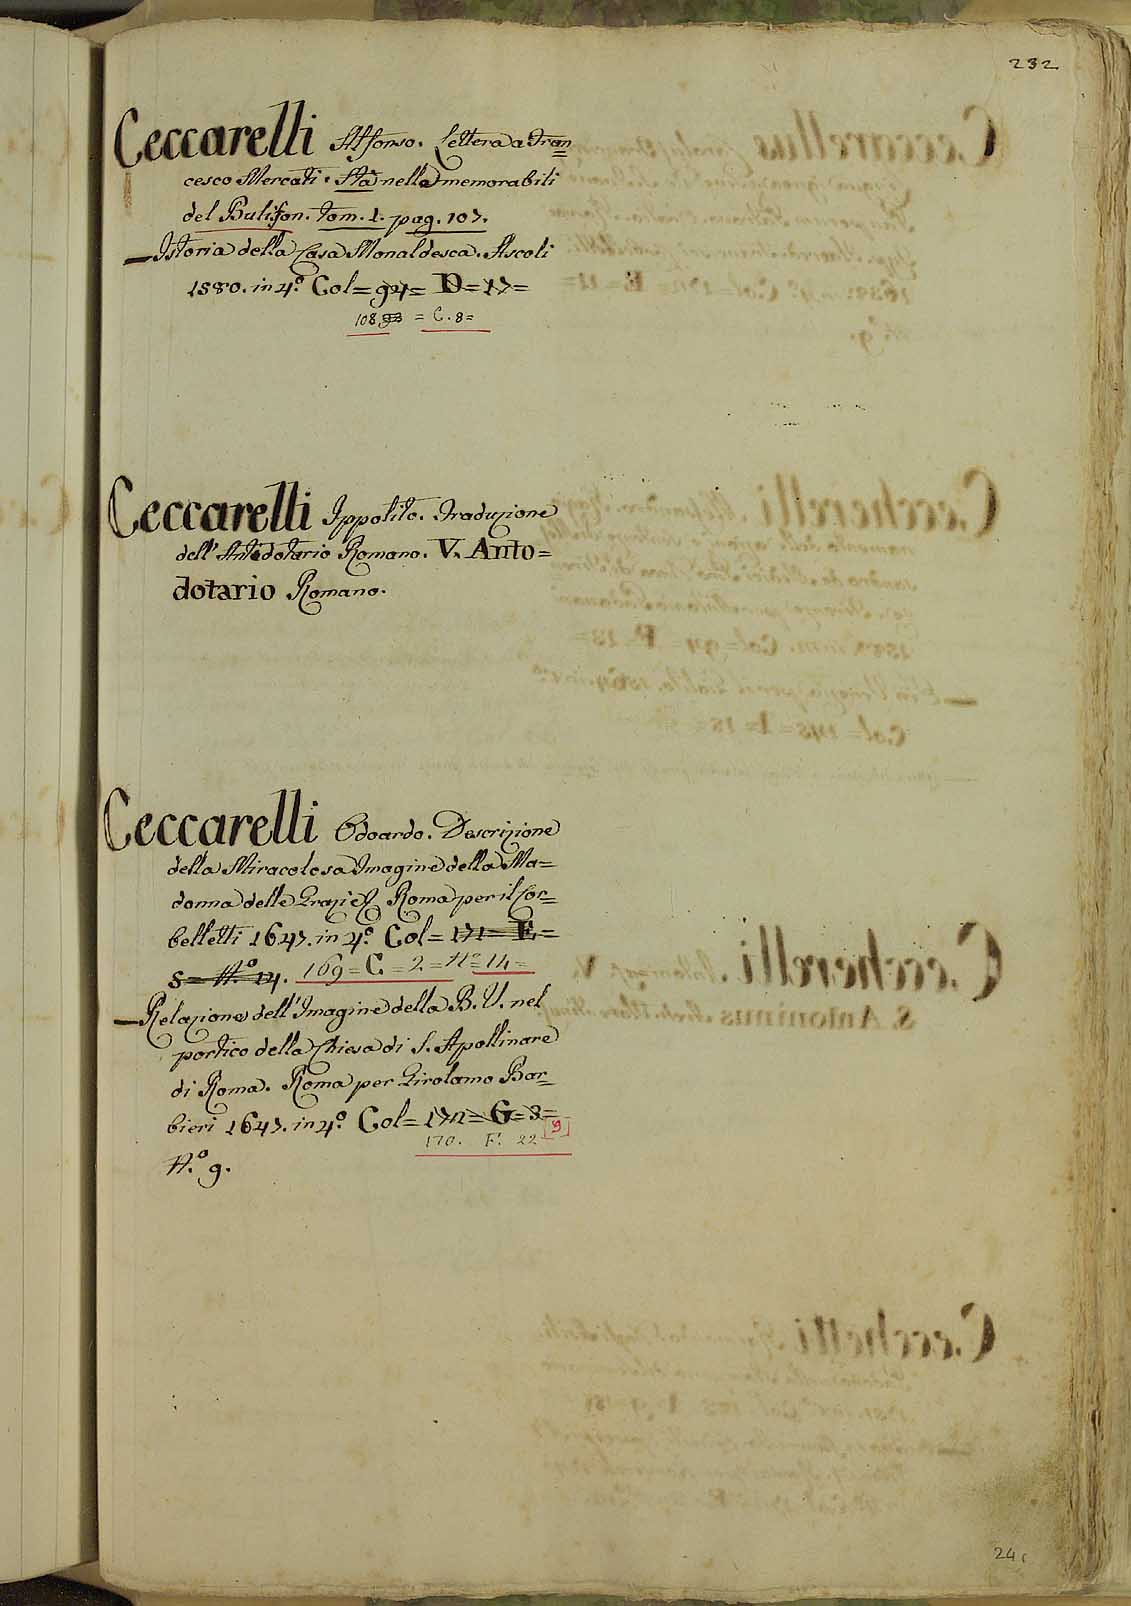 232
Ceccarelli Alfonso. Lettera a Fran=
cesco Mercati. Sta nella memorabili
del Bulifon. tom. 1. pag. 107.
— Istoria della Casa Monaldesca. Ascoli
1580. in 4.º Col= 94= D= 17=
108. 93 = C. 8=
Ceccarelli Ippolito. Traduzione
dell'Antidotario Romano. V. Anto=
dotario Romano.
Ceccarelli Odoardo. Descrizione
della Miracolosa Imagine della Ma=
donna delle Grazie Roma per il Cor=
belletti 1647. in 4.º Col= 171= E=
8= N.º 14. 169= C= 2= Nº 14=
— Relazione dell'Imagine della B. V. nel
portico della Chiesa di S. Apollinare
di Roma. Roma per Girolamo Bar=
bieri 1647. in 4.º Col= 172= G= 3=
170. F. 22 [9]
N.º 9.
24